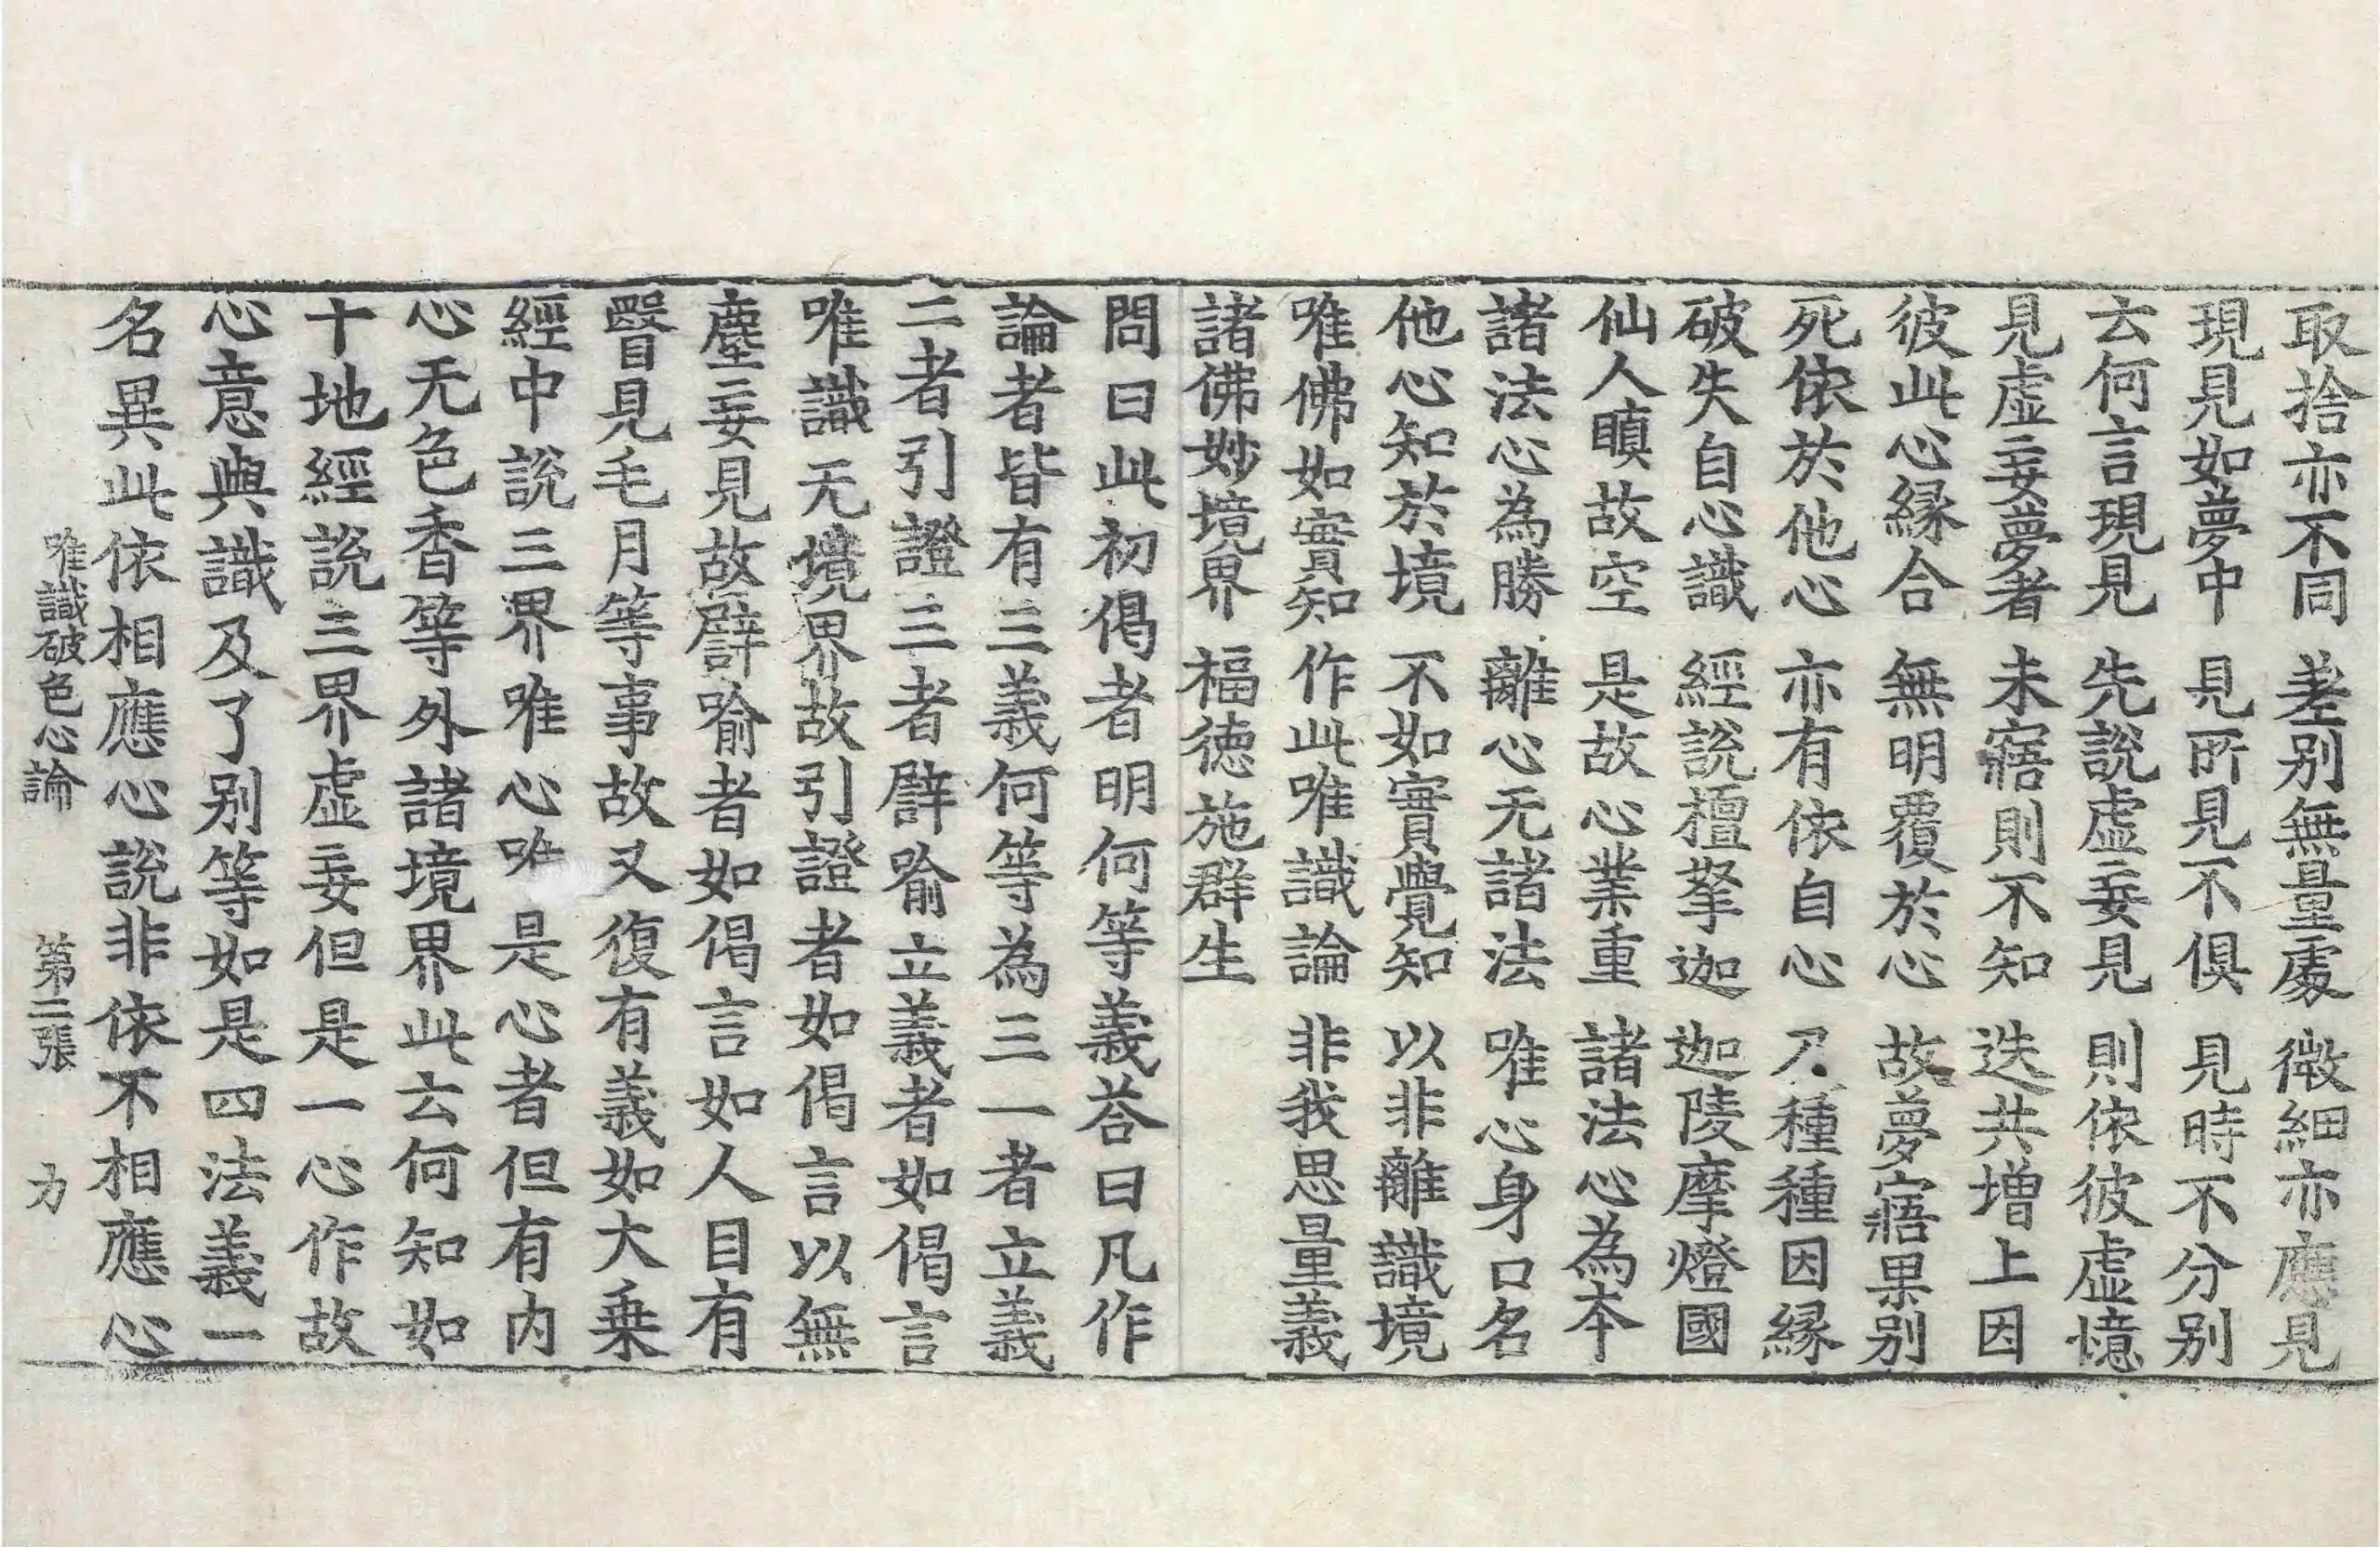 取捨亦不同　差別無量處　微細亦應見
現見如夢中　見所見不俱　見時不分別
云何言現見　先說虛妄見　則依彼虛憶
見虛妄夢者　未寤則不知　迭共增上因
彼此心緣合　無明覆於心　故夢寤果別
死依於他心　亦有依自心　種種因緣
破失自心識　經說檀拏迦　迦陵摩燈國
仙人瞋故空　是故心業重　諸法心為本
諸法心為勝　離心无諸法　唯心身口名
他心知於境　不如實覺知　以非離識境
唯佛如實知　作此唯識論　非我思量義
諸佛妙境界　福德施群生
問曰此初偈者明何等義荅曰凡作
論者皆有三義何等為三一者立義
二者引證三者譬喻立義者如偈言
唯識无境界故引證者如偈言以無
塵妄見故譬喻者如偈言如人目有
瞖見毛月等事故又復有義如大乗
經中說三界唯心唯是心者但有内
心无色香等外諸境界此云何知如
十地經說三界虛妄但是一心作故
心意與識及了別等如是四法義一
名異此依相應心說非依不相應心
唯識破色心論　第三張　力